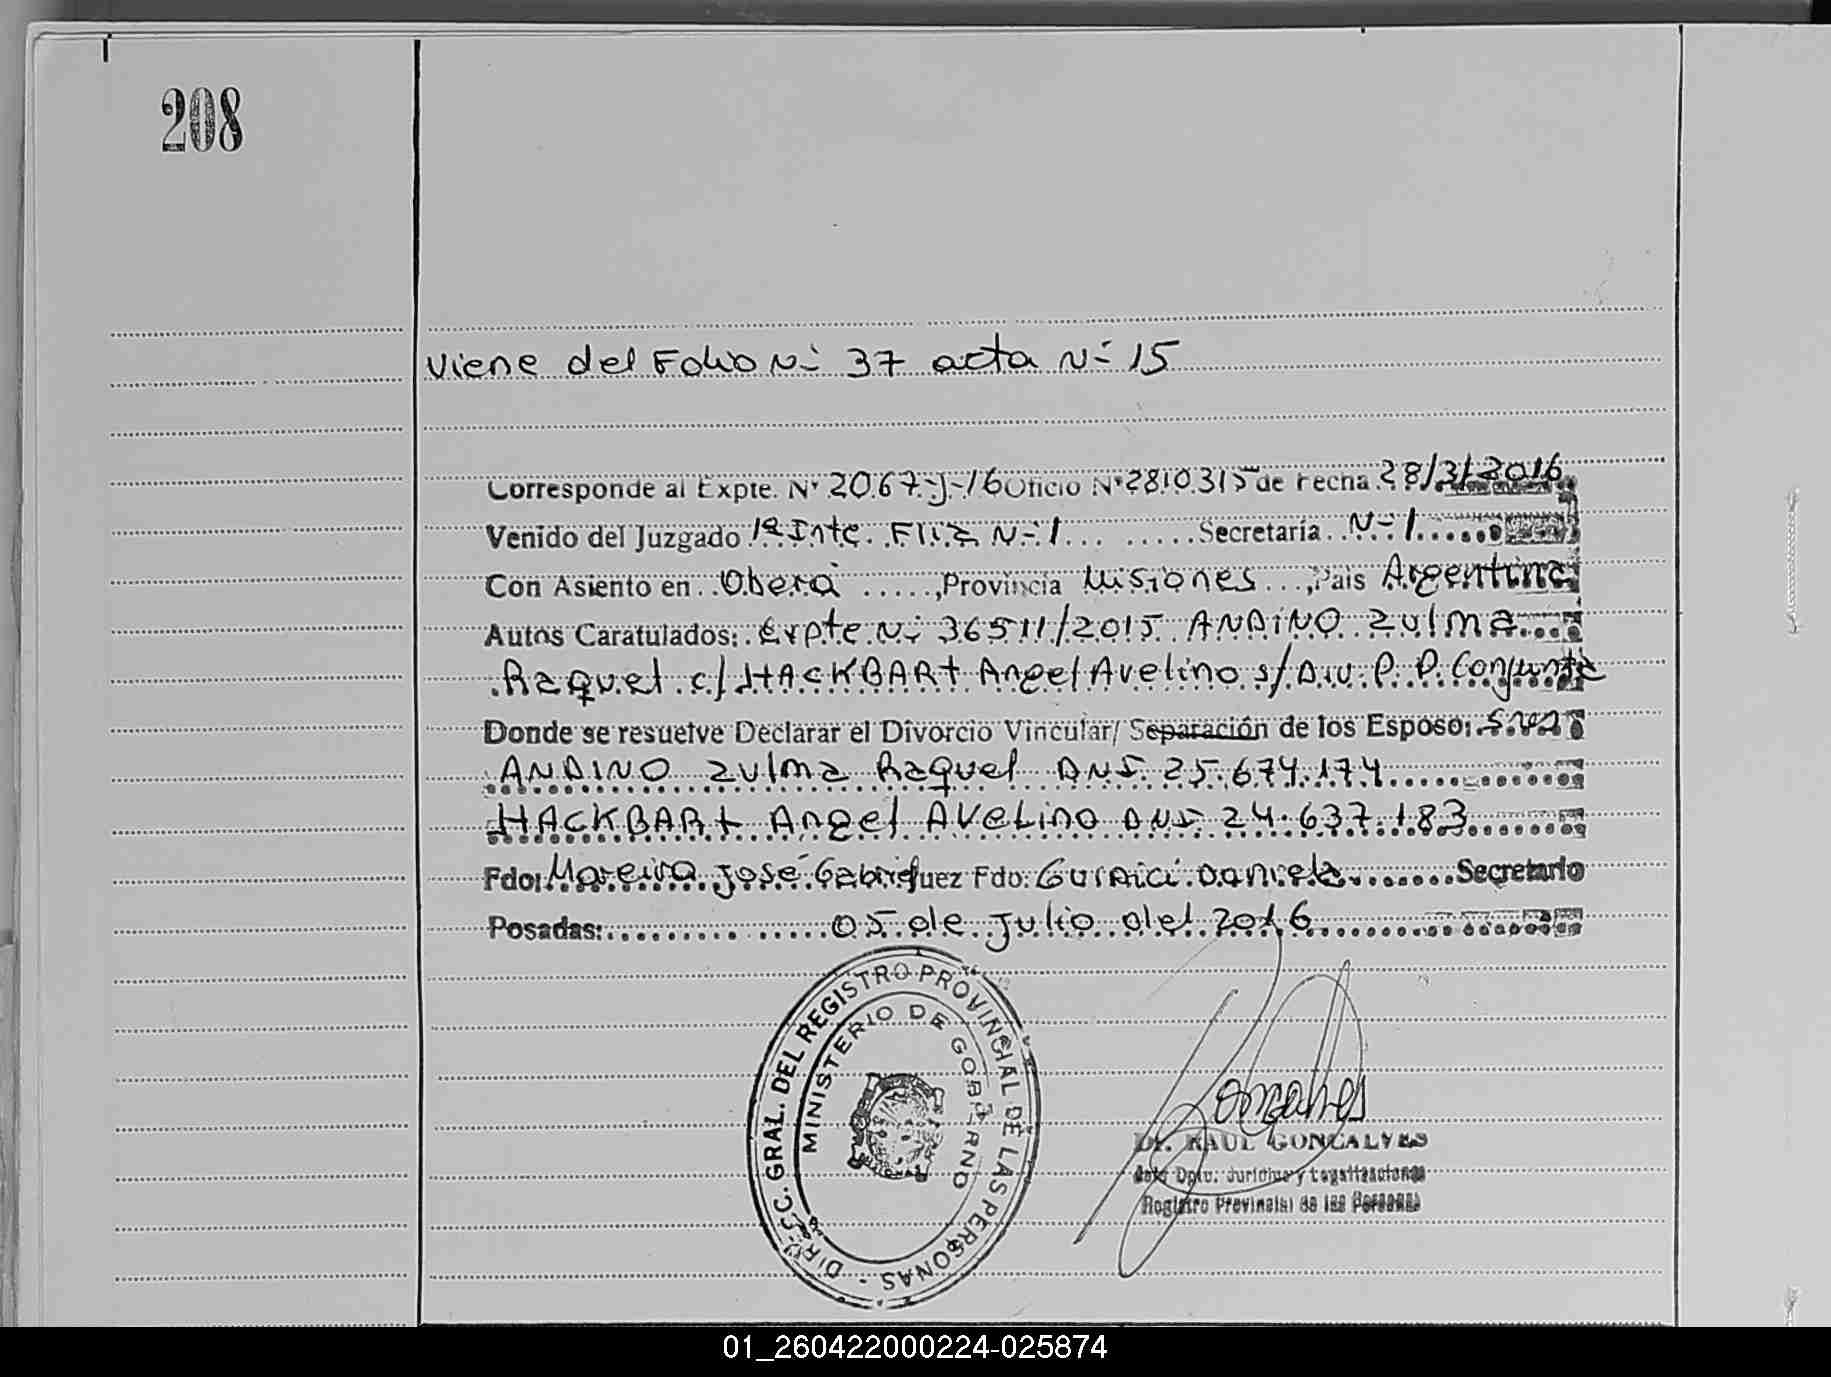 208
Viene del Folio N- 37 acta N- 15
Corresponde al Expte. N° 2067-J-16 Oficio N° 2810315 de Fecha 28/3/2016
Venido del Juzgado 1ª Inte. Flia N-1 Secretaría N-1
Con Asiento en Oberá, Provincia Misiones, Pais Argentina
Autos Caratulados: Expte N- 36511/2015 ANDINO Zulma
Raquel c/ HACKBART Angel Avelino s/ Div. P. P. Conjunta
Donde se resuelve Declarar el Divorcio Vincular/ Separación de los Esposo: Sres
ANDINO Zulma Raquel DNI 25.674.174
HACKBART Angel AVELino DNI 24.637.183
Fdo: Moreira José Gabriel Juez Fdo: Daniela Secretario
Posadas: 05 de Julio del 2016
DIRECC. GRAL. DEL REGISTRO PROVINCIAL DE LAS PERSONAS -
MINISTERIO DE GOBIERNO
Goncalves
Dr. RAUL GONCALVES
Jefe Dpto. Jurídico y Legalizaciones
Registro Provincial de las Personas
01_260422000224-025874